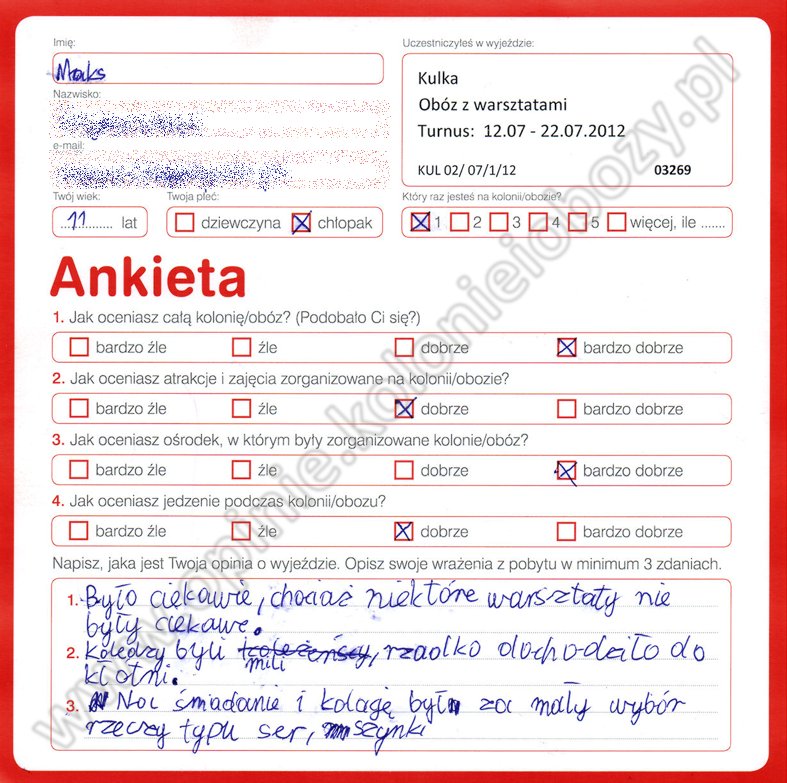 Imię:
Uczestniczyłeś w wyjeździe:
Maks
Kulka
Nazwisko:
Obóz z warsztatami
Turnus: 12.07 - 22.07.2012
e-mail:
KUL 02/ 07/1/12 03269
Twój wiek: Twoja płeć: Który raz jesteś na kolonii/obozie?
11 lat dziewczyna chłopak 1 2 3 4 5 więcej, ile .......
Ankieta
1. Jak oceniasz całą kolonię/obóz? (Podobało Ci się?)
bardzo źle źle dobrze bardzo dobrze
2. Jak oceniasz atrakcje i zajęcia zorganizowane na kolonii/obozie?
bardzo źle źle dobrze bardzo dobrze
3. Jak oceniasz ośrodek, w którym były zorganizowane kolonie/obóz?
bardzo źle źle dobrze bardzo dobrze
4. Jak oceniasz jedzenie podczas kolonii/obozu?
bardzo źle źle dobrze bardzo dobrze
Napisz, jaka jest Twoja opinia o wyjeździe. Opisz swoje wrażenia z pobytu w minimum 3 zdaniach.
1. Było ciekawie, chociaż niektóre warsztaty nie
były ciekawe.
2. Koledzy byli mili, rzadko dochodziło do
kłotni.
3. Na śniadanie i kolację był za mały wybór
rzeczy typu ser, szynki
www.opinie.kolonieiobozy.pl